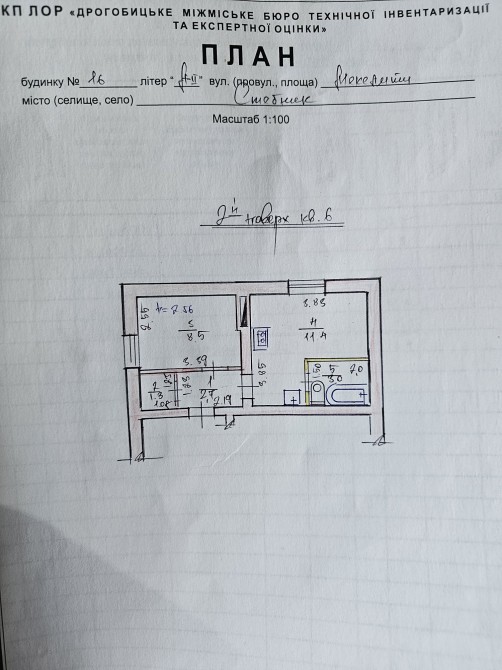 КП ЛОР «ДРОГОБИЦЬКЕ МІЖМІСЬКЕ БЮРО ТЕХНІЧНОЇ ІНВЕНТАРИЗАЦІЇ
ТА ЕКСПЕРТНОЇ ОЦІНКИ»
ПЛАН
будинку № 16 літер "А-ІІ" вул. (провул., площа)
місто (селище, село) Стебник
Масштаб 1:100
2й поверх кв. 6
h= 2.56
3.83
3
8.5
4
11.4
3.39
5
3.0
2.0
2
1.3
1
2.7
1.08
2.19